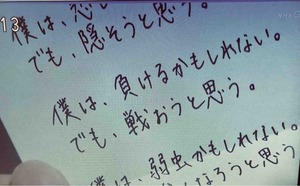 13
僕は、恋
でも、隠そうと思う。
僕は、負けるかもしれない。
でも、戦おうと思う。
は、弱虫かもしれない。
なろうと思う